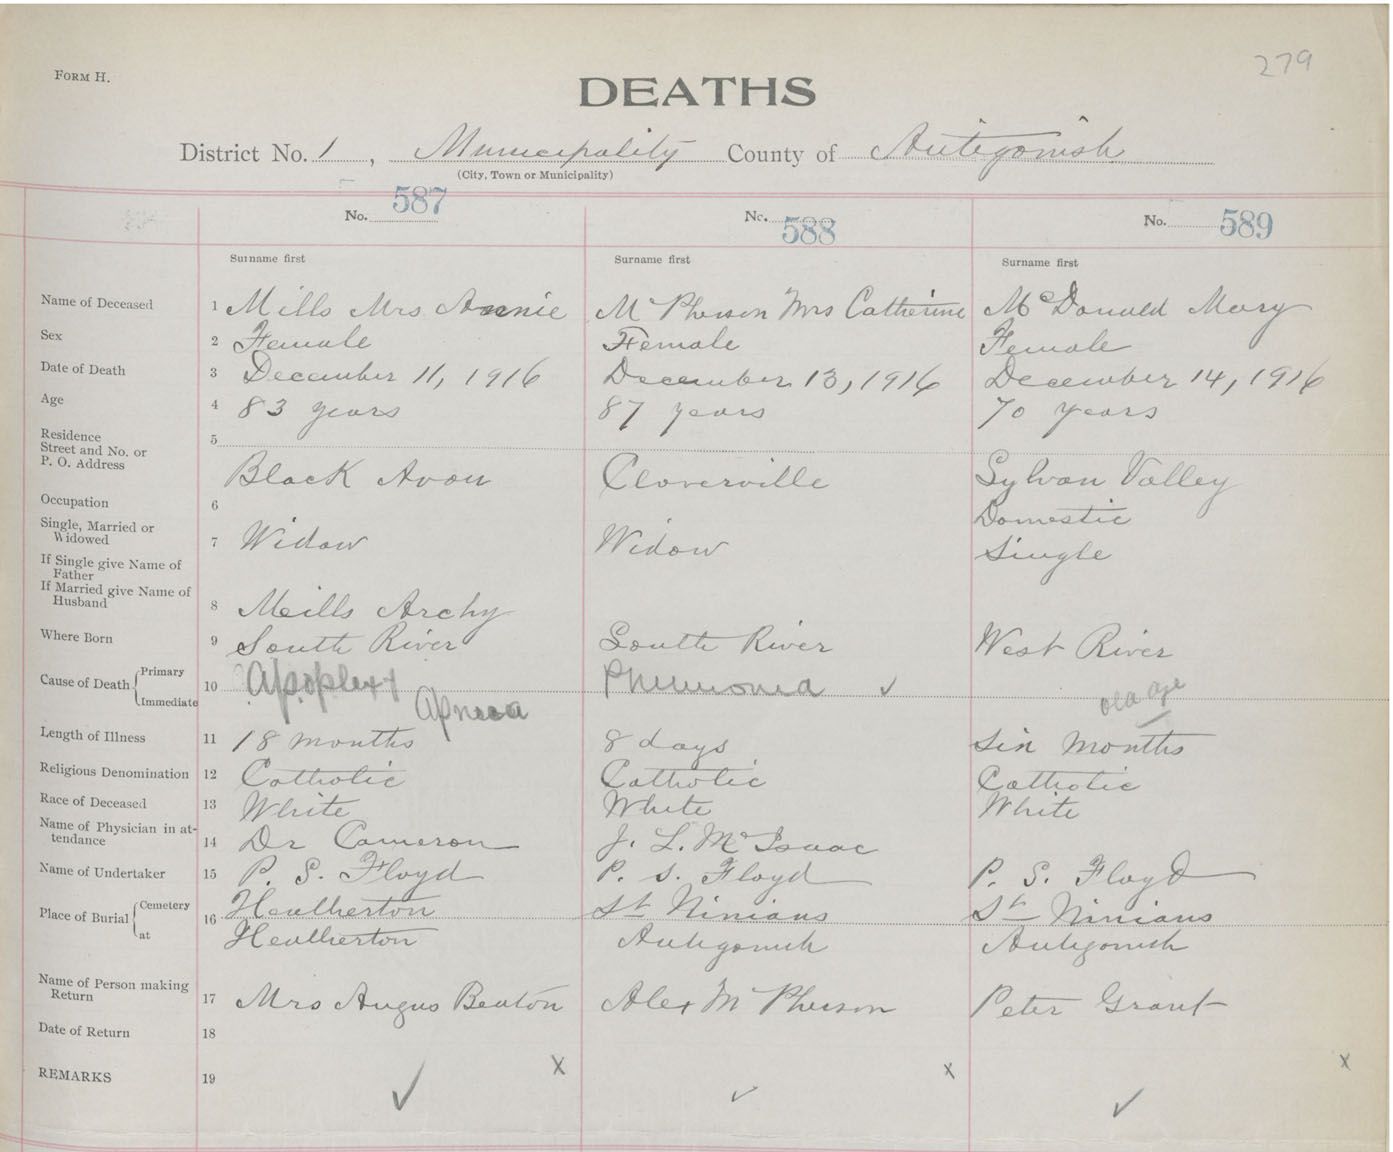 279
FORM H.
DEATHS
District No. 1, Municipality County of Antigonish
(City, Town or Municipality)
No. 587 No. 588 No. 589
Surname first Surname first Surname first
Name of Deceased 1 Mills Mrs Annie Mc Pherson Mrs Catherine McDonald Mary
Sex 2 Female Female Female
Date of Death 3 December 11, 1916 December 13, 1916 December 14, 1916
Age 4 83 years 87 years 70 years
Residence
Street and No. or
P. O. Address 5 Black Avon Cloverville Sylvan Valley
Occupation 6 Domestic
Single, Married or
Widowed 7 Widow Widow Single
If Single give Name of
Father
If Married give Name of
Husband 8 Meills Archy
Where Born 9 South River South River West River
Cause of Death Primary 10 Apoplexy Pneumonia ✓ old age
Immediate Apnea
Length of Illness 11 18 months 8 days Six months
Religious Denomination 12 Catholic Catholic Catholic
Race of Deceased 13 White White White
Name of Physician in at-
tendance 14 Dr Cameron J. L. McIsaac
Name of Undertaker 15 P. S. Floyd P. S. Floyd P. S. Floyd
Place of Burial Cemetery 16 Heatherton St Ninians St Ninians
at Heatherton Antigonish Antigonish
Name of Person making
Return 17 Mrs Angus Beaton Alex McPherson Peter Grant
Date of Return 18
REMARKS 19 ✓ x ✓ x ✓ x